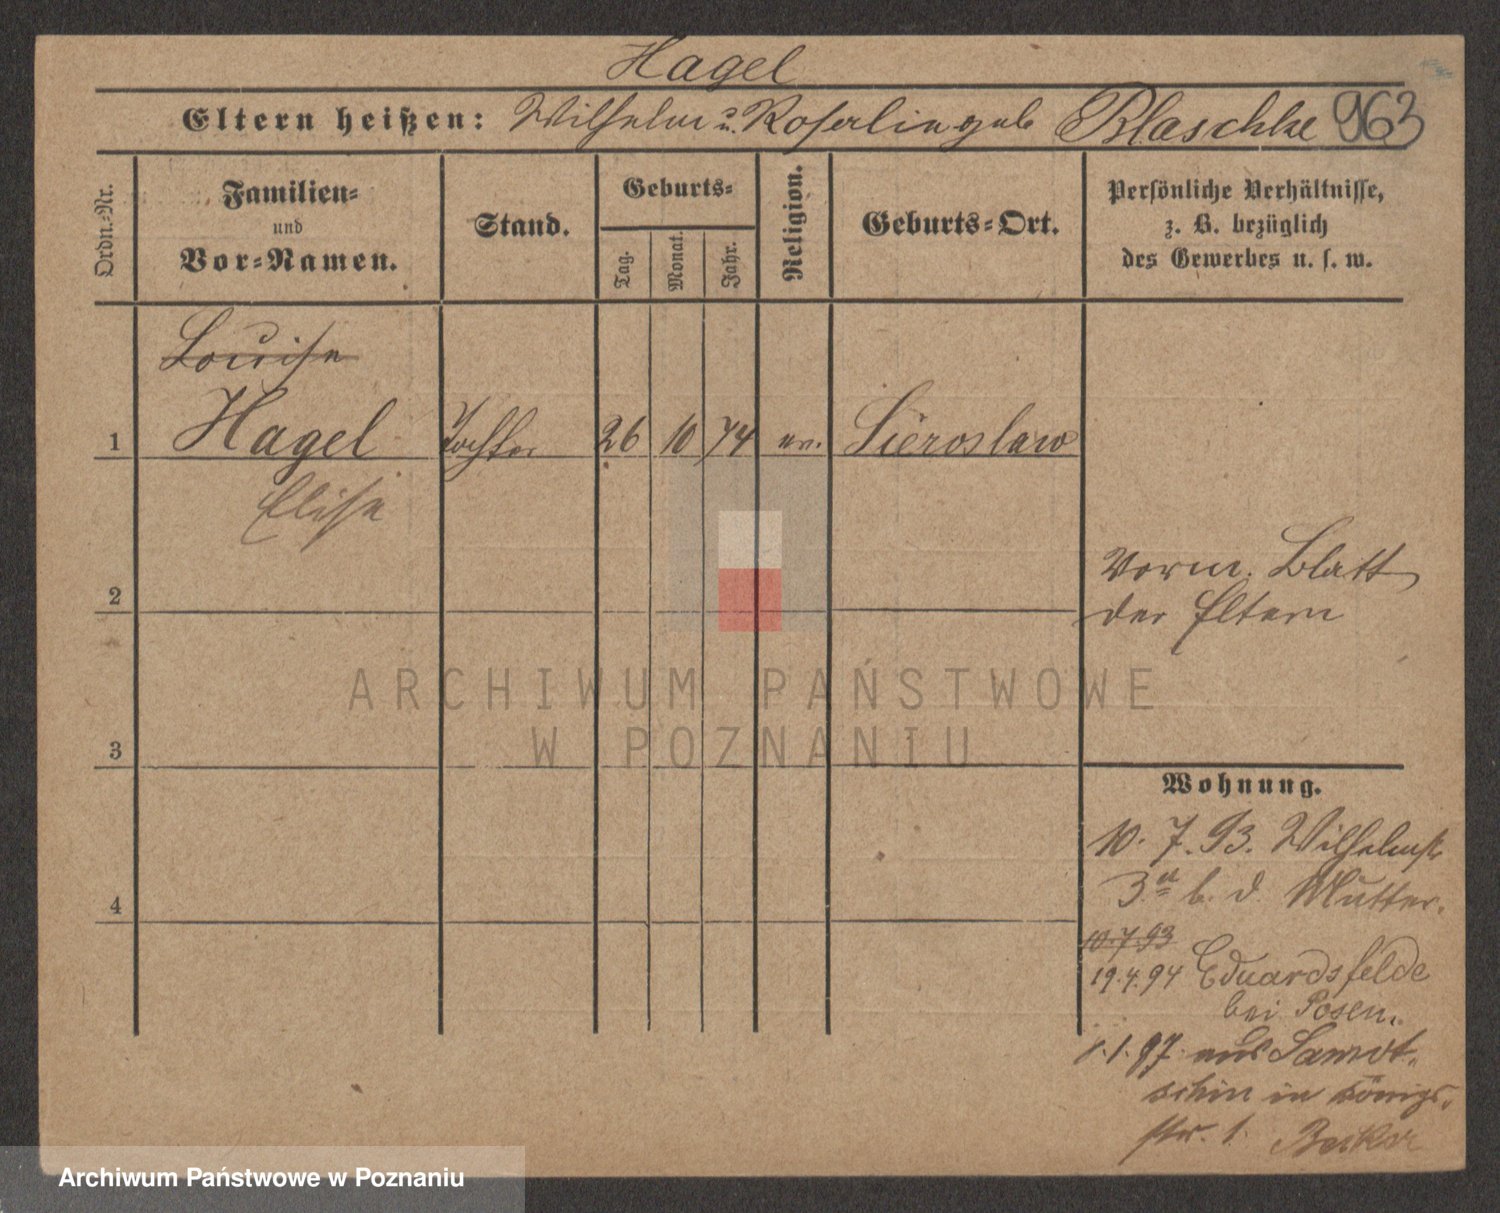 Hagel
Eltern heißen: Wilhelm u. Rosalie geb Blaschke 963
Ordn.-Nr.
Familien-
und
Vor-Namen.
Stand.
Geburts-
Tag.
Monat.
Jahr.
Religion.
Geburts-Ort.
Persönliche Verhältnisse,
z. B. bezüglich
des Gewerbes u. s. w.
Louise
1 Hagel Tochter 26 10 74 ev. Sieroslaw
Elise
2
Vorm. Blatt
der Eltern
3
Wohnung.
10. 7. 93. Wilhelmstr
3 II b. d. Mutter.
4
10.7.93
19.4.94 Eduardsfelde
bei Posen.
1.97 aus Samot-
schin in Königs-
str. 1. Becker
ARCHIWUM PAŃSTWOWE
W POZNANIU
Archiwum Państwowe w Poznaniu